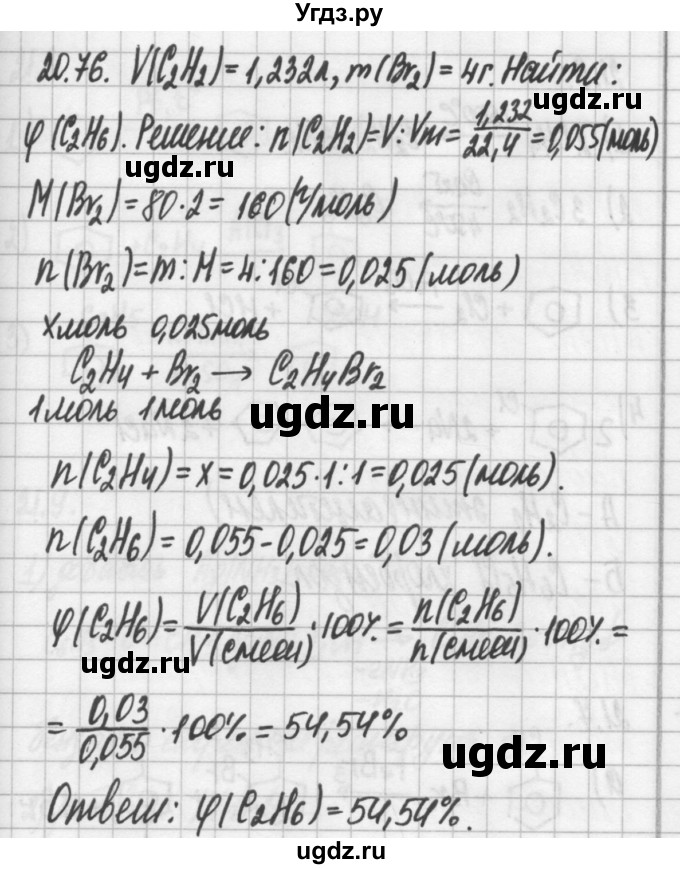 Угдз.ру
20.76. V(C₂H₂)=1,232л, m(Br₂)=4г. Найти:
φ(C₂H₆). Решение: n(C₂H₂)=V:Vm=1,232/22,4=0,055(моль)
ugdz.ru
ugdz.ru
M(Br₂)=80·2=160(г/моль)
n(Br₂)=m:M=4:160=0,025(моль)
xмоль 0,025моль
C₂H₄+Br₂→C₂H₄Br₂
1моль 1моль
ugdz.ru
n(C₂H₄)=x=0,025·1:1=0,025(моль).
n(C₂H₆)=0,055-0,025=0,03(моль).
φ(C₂H₆)=V(C₂H₆)/V(смеси)·100%=n(C₂H₆)/n(смеси)·100%=
ugdz.ru
=0,03/0,055·100%=54,54%
ugdz.ru
Ответ: φ(C₂H₆)=54,54%.
ugdz.ru
ugdz.ru